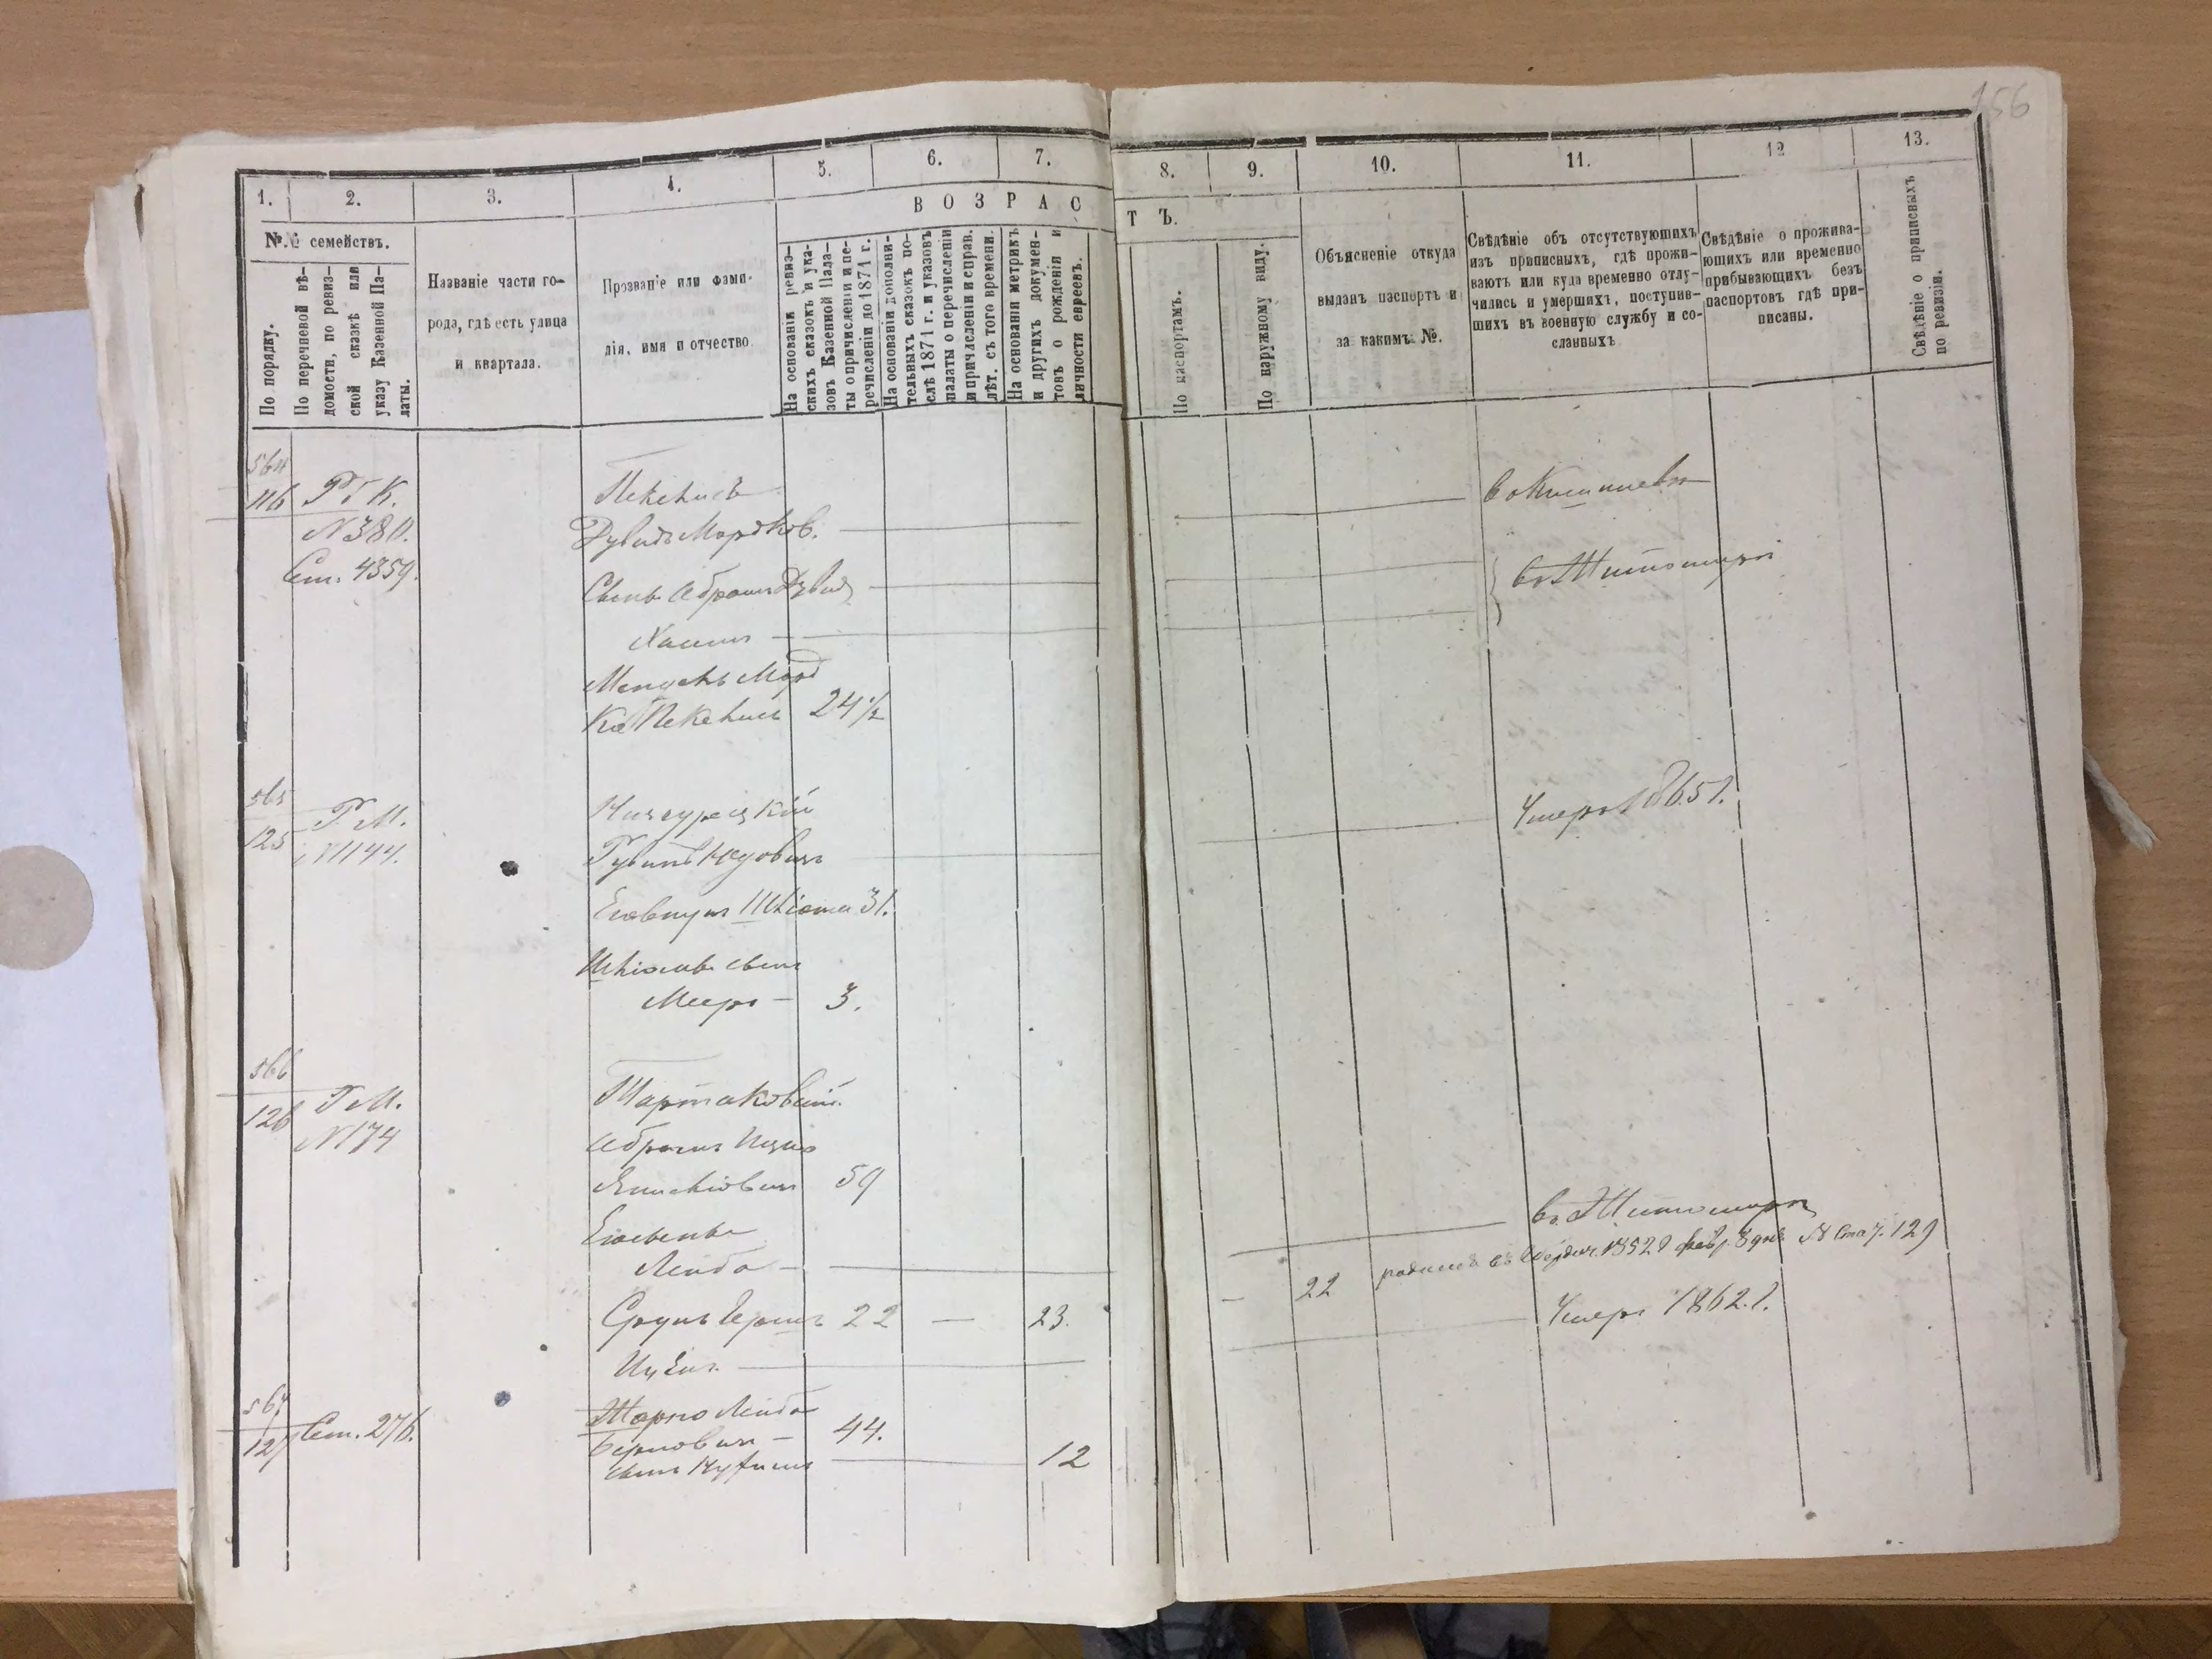 156
1. 2. 3. 4. 5. 6. 7. 8. 9. 10. 11. 12 13.
В О З Р А С Т Ъ.
№№ семействъ.
По порядку.
По перечневой вѣ-
домости, по ревиз-
ской сказкѣ или
указу Казенной Па-
латы.
Названіе части го-
рода, гдѣ есть улица
и квартала.
Прозваніе или фами-
лія, имя и отчество.
На основаніи ревиз-
скихъ сказокъ и ука-
зовъ Казенной Пала-
ты о причисленіи и пе-
речисленіи до 1871 г.
На основаніи дополни-
тельныхъ сказокъ по-
слѣ 1871 г. и указовъ
палаты о перечисленіи
и причисленіи и справ.
лѣт. съ того времени.
На основаніи метрикъ
и другихъ докумен-
товъ о рожденіи и
личности евреевъ.
По паспортамъ.
По наружному виду.
Объясненіе откуда
выданъ паспортъ и
за какимъ №.
Свѣдѣніе объ отсутствующихъ
изъ приписныхъ, гдѣ прожи-
ваютъ или куда временно отлу-
чились и умершихъ, поступив-
шихъ въ военную службу и со-
сланныхъ.
Свѣдѣніе о прожива-
ющихъ или временно
прибывающихъ безъ
паспортовъ гдѣ при-
писаны.
Свѣдѣніе о приписныхъ
по ревизіи.
564
116
N 380.
Ст. 4359.
Дувидъ Мордков.
в Кишиневѣ
Сынъ Абрамъ Дувид
в Житомирѣ
Хаимъ —
Мендель Морд
ко 24 ½
565
125
Р. М.
N 1144.
Умеръ 1865 г.
Его внукъ Шліома 31.
Шліомы сынъ
Мееръ — 3.
566
126
Р. М.
N 174
Тартаковскій
Абрамъ Ицко
59
Его сынъ
Лейба —
в Житомирѣ
Сруль Герш 22 — 23. — 22
родился в Бердич. 1852 г. февр. 8 дня Ст. 129
Умеръ 1862 г.
567
127
Ст. 276.
Лейба
Берковичъ — 44.
сынъ 12